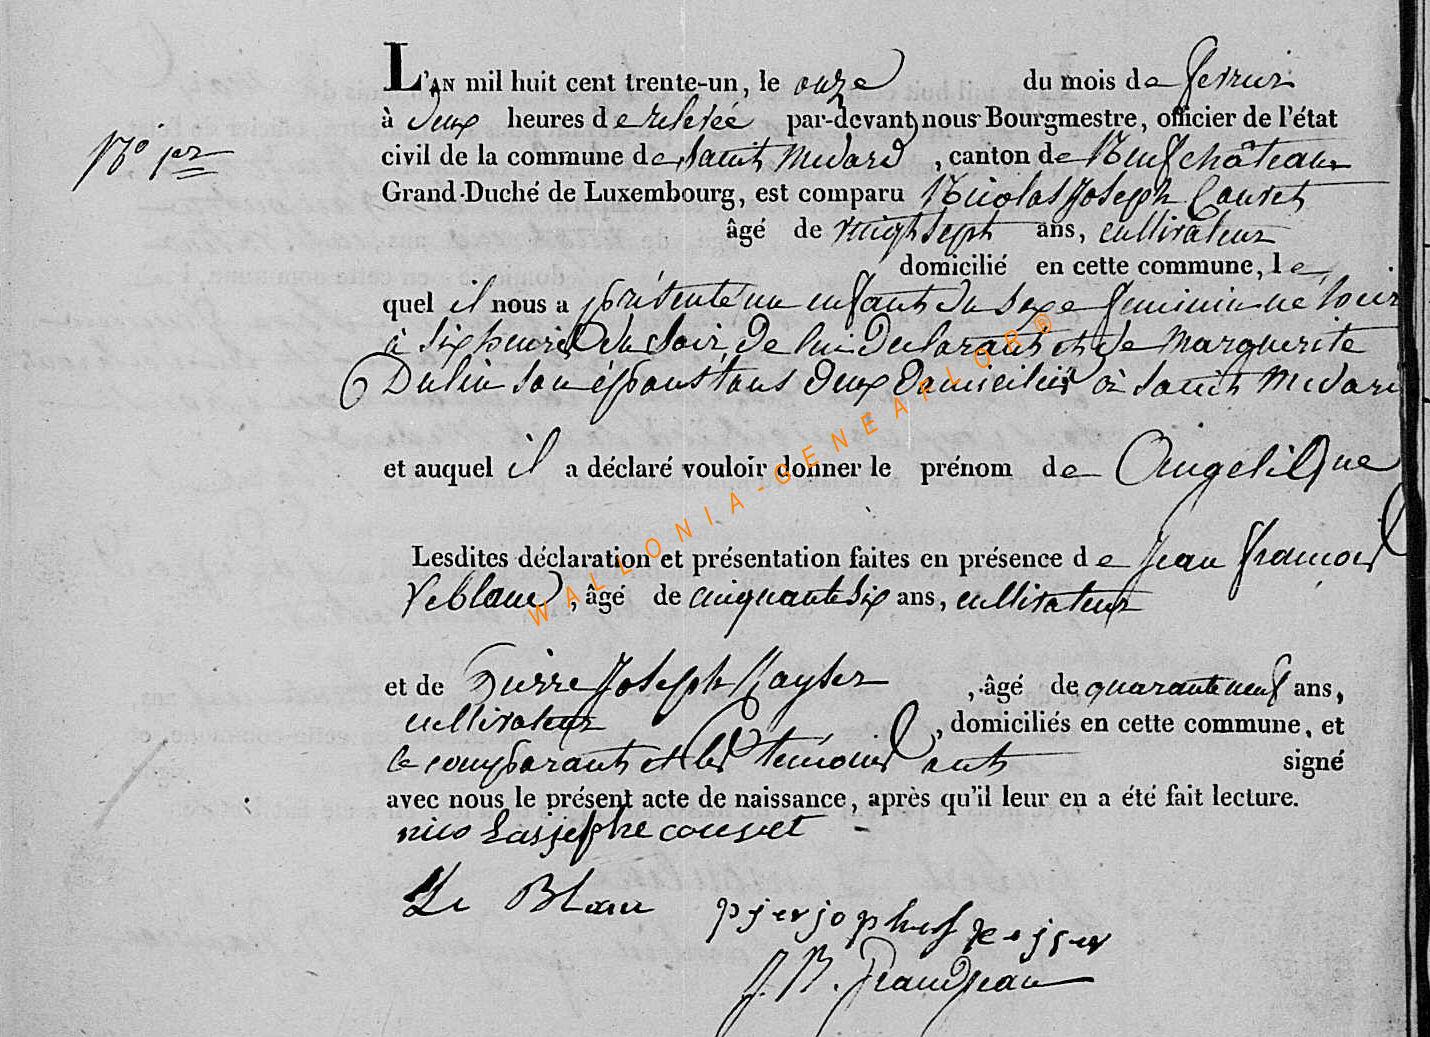 L'AN mil huit cent trente-un, le onze du mois de fevrier
à deux heures de relevée par-devant nous Bourgmestre, officier de l'état
N° 1er
civil de la commune de Saint Medard, canton de Neufchâteau
Grand-Duché de Luxembourg, est comparu Nicolas Joseph Couvet
âgé de vingt sept ans, cultivateur
domicilié en cette commune, le
quel il nous a présenté un enfant du sexe feminin né
à six heures du soir de lui declarant et de Marguerite
son épouse tous deux domiciliés à Saint Medard
et auquel il a déclaré vouloir donner le prénom de Angelique
Lesdites déclaration et présentation faites en présence de Jean François
Leblanc, âgé de cinquante six ans, cultivateur
et de Pierre Joseph Kayser, âgé de quarante neuf ans,
cultivateur, domiciliés en cette commune, et
le comparant et les témoins ont signé
avec nous le présent acte de naissance, après qu'il leur en a été fait lecture.
nicolas josephe couvet
Le Blanc
J. B. Grandjean
WALLONIA-GENEAFLOR®